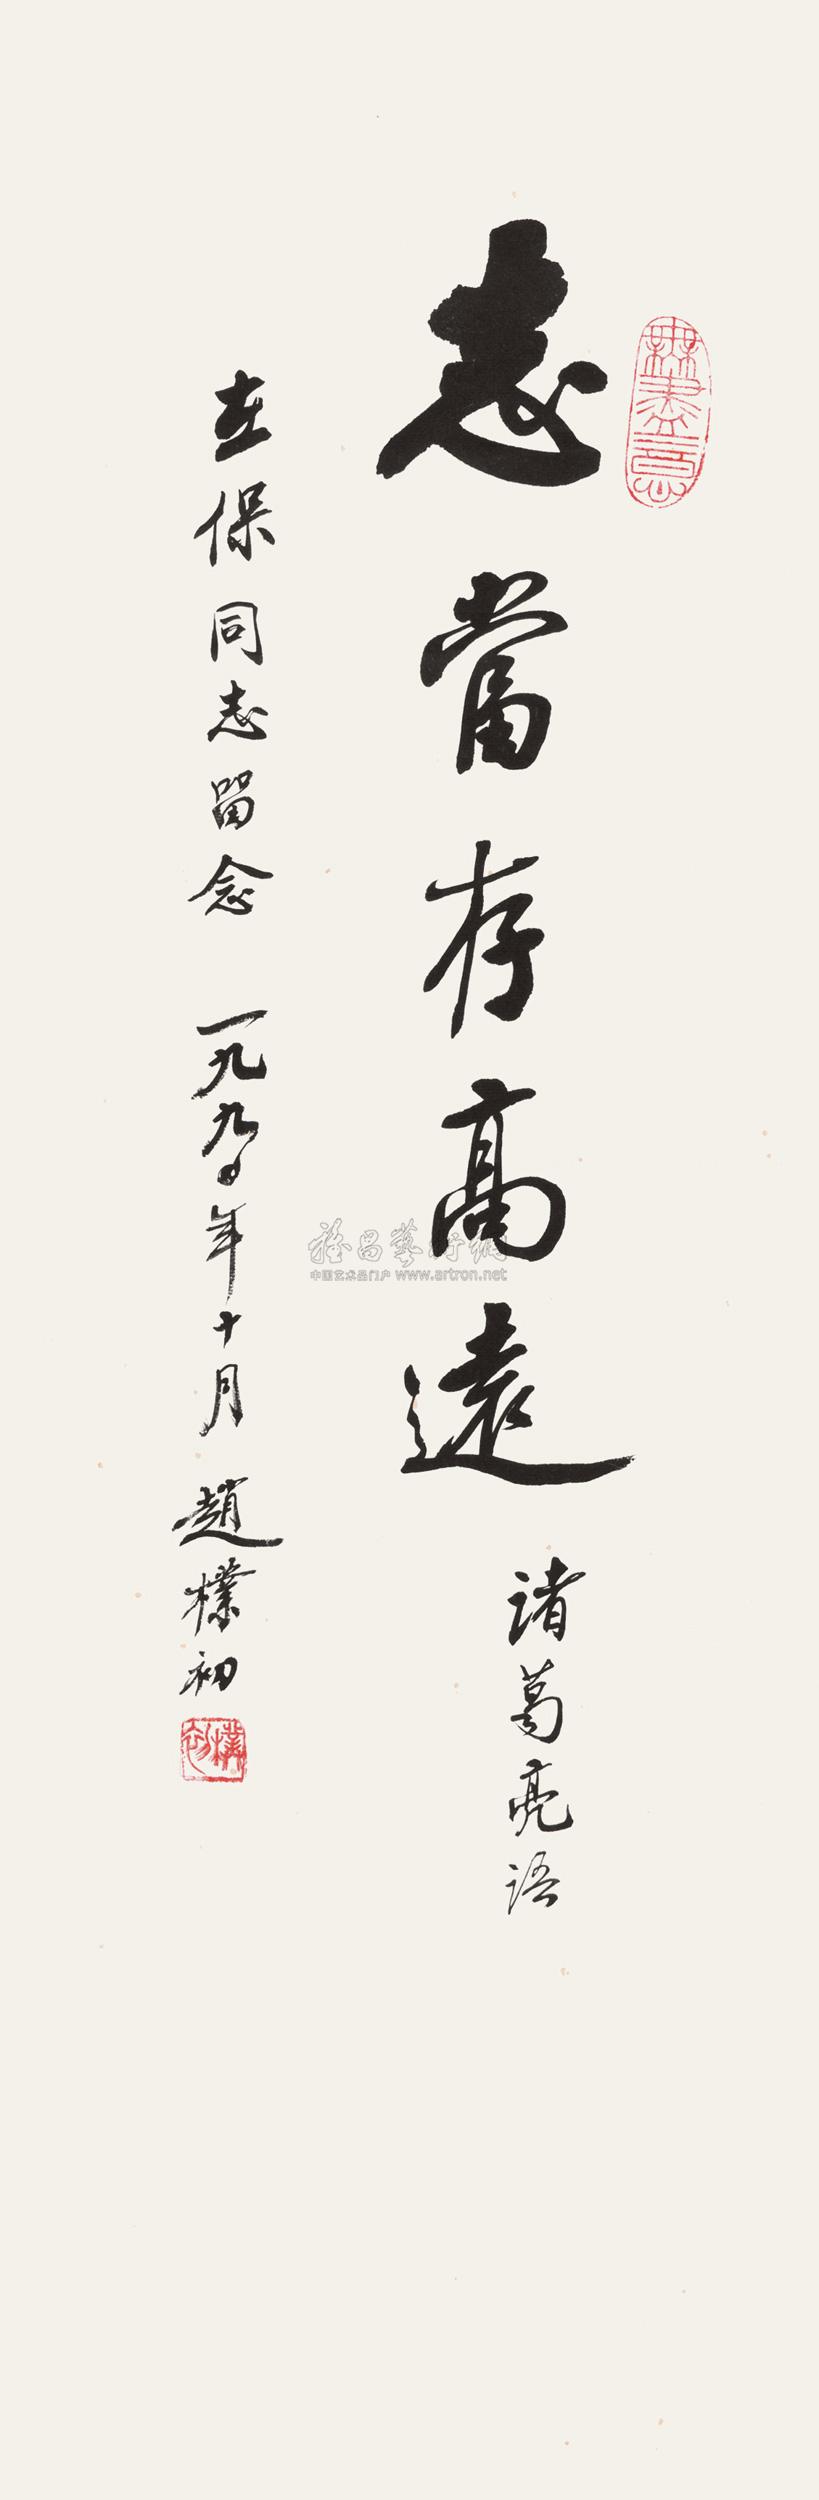 志當存高遠
诸葛亮语
立保同志留念 一九九〇年十月 趙樸初
雅昌藝術網
中国艺术品门户 www.artron.net